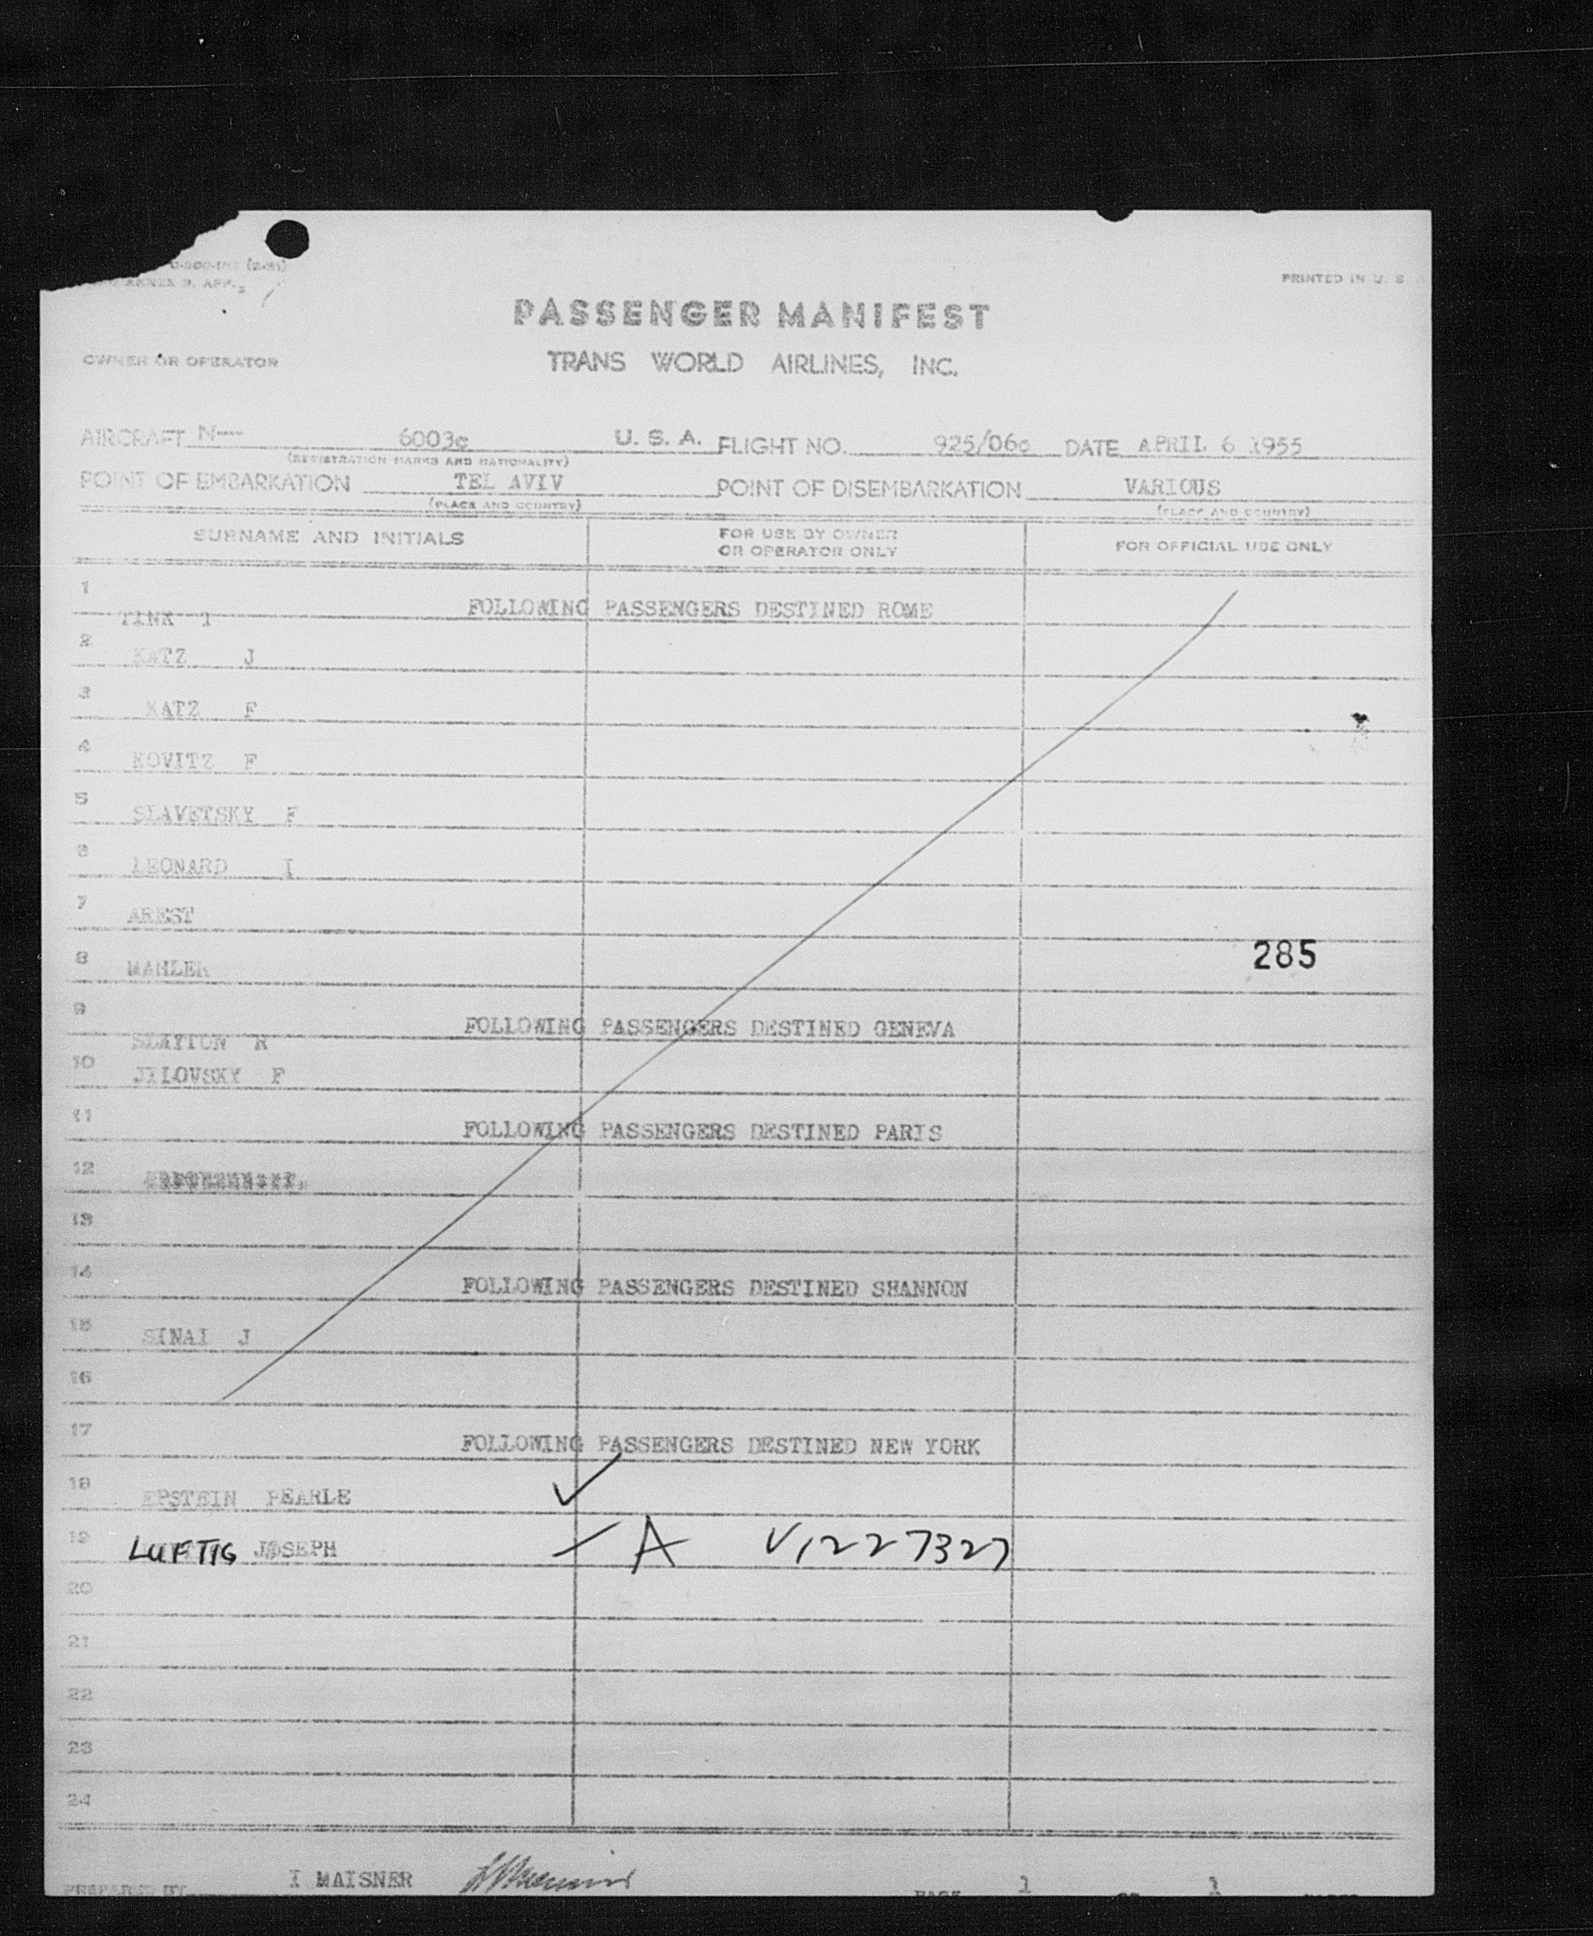 PRINTED IN U. S
PASSENGER MANIFEST
OWNER OR OPERATOR TRANS WORLD AIRLINES, INC.
AIRCRAFT N-- 6003c U. S. A. FLIGHT NO. 925/06c DATE APRIL 6 1955
(REGISTRATION MARKS AND NATIONALITY)
POINT OF EMBARKATION TEL AVIV POINT OF DISEMBARKATION VARIOUS
(PLACE AND COUNTRY) (PLACE AND COUNTRY)
SURNAME AND INITIALS FOR USE BY OWNER OR OPERATOR ONLY FOR OFFICIAL USE ONLY
1 FOLLOWING PASSENGERS DESTINED ROME
TINK
2 KATZ J
3 KATZ F
4 KOVITZ F
5 SLAVETSKY F
6 LEONARD I
7 AREST
8 MAHLER
285
9 FOLLOWING PASSENGERS DESTINED GENEVA
SLAYTON R
10 JILOVSKY F
11 FOLLOWING PASSENGERS DESTINED PARIS
12
13
14 FOLLOWING PASSENGERS DESTINED SHANNON
15 SINAI J
16
17 FOLLOWING PASSENGERS DESTINED NEW YORK
18 EPSTEIN PEARLE ✓
19 LUFTIG JOSEPH A V1227327
20
21
22
23
24
PREPARED BY I MAISNER
PAGE 1 OF 1